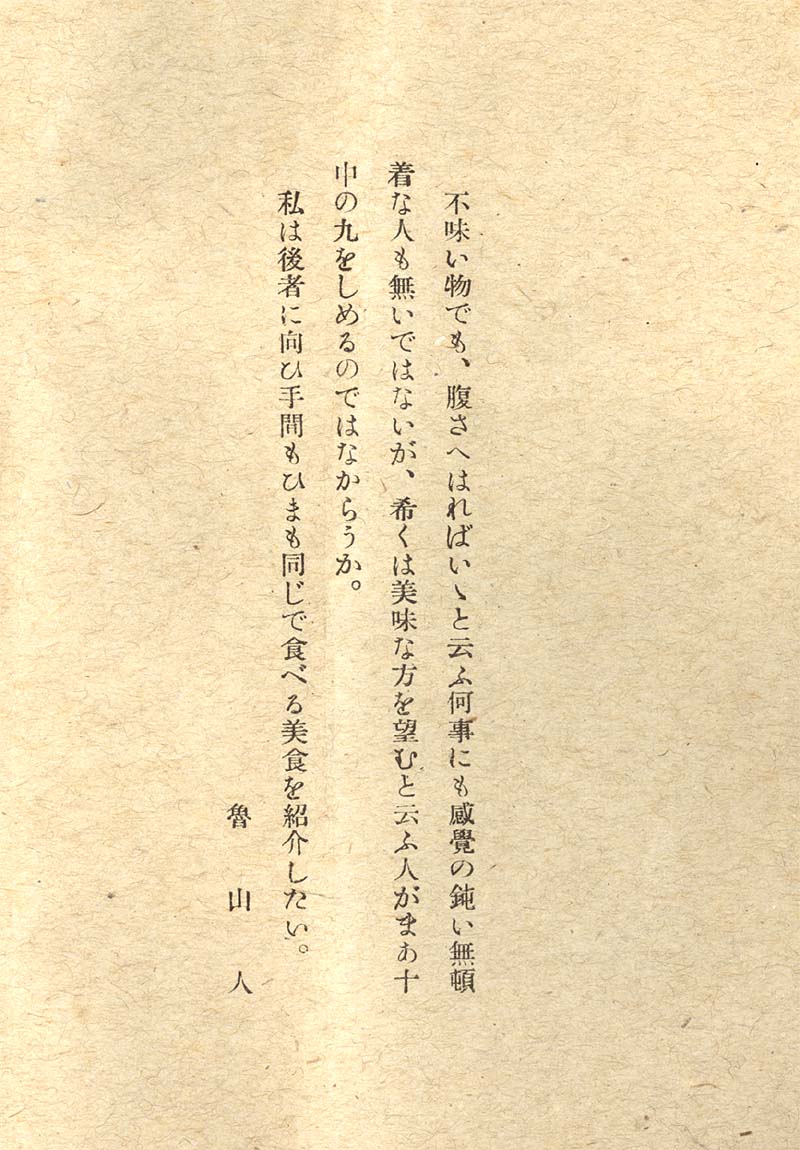 不味い物でも、腹さへはればいゝと云ふ何事にも感覺の鈍い無頓
着な人も無いではないが、希くは美味な方を望むと云ふ人がまあ十
中の九をしめるのではなからうか。
私は後者に向ひ手間もひまも同じで食べる美食を紹介したい。
魯山人